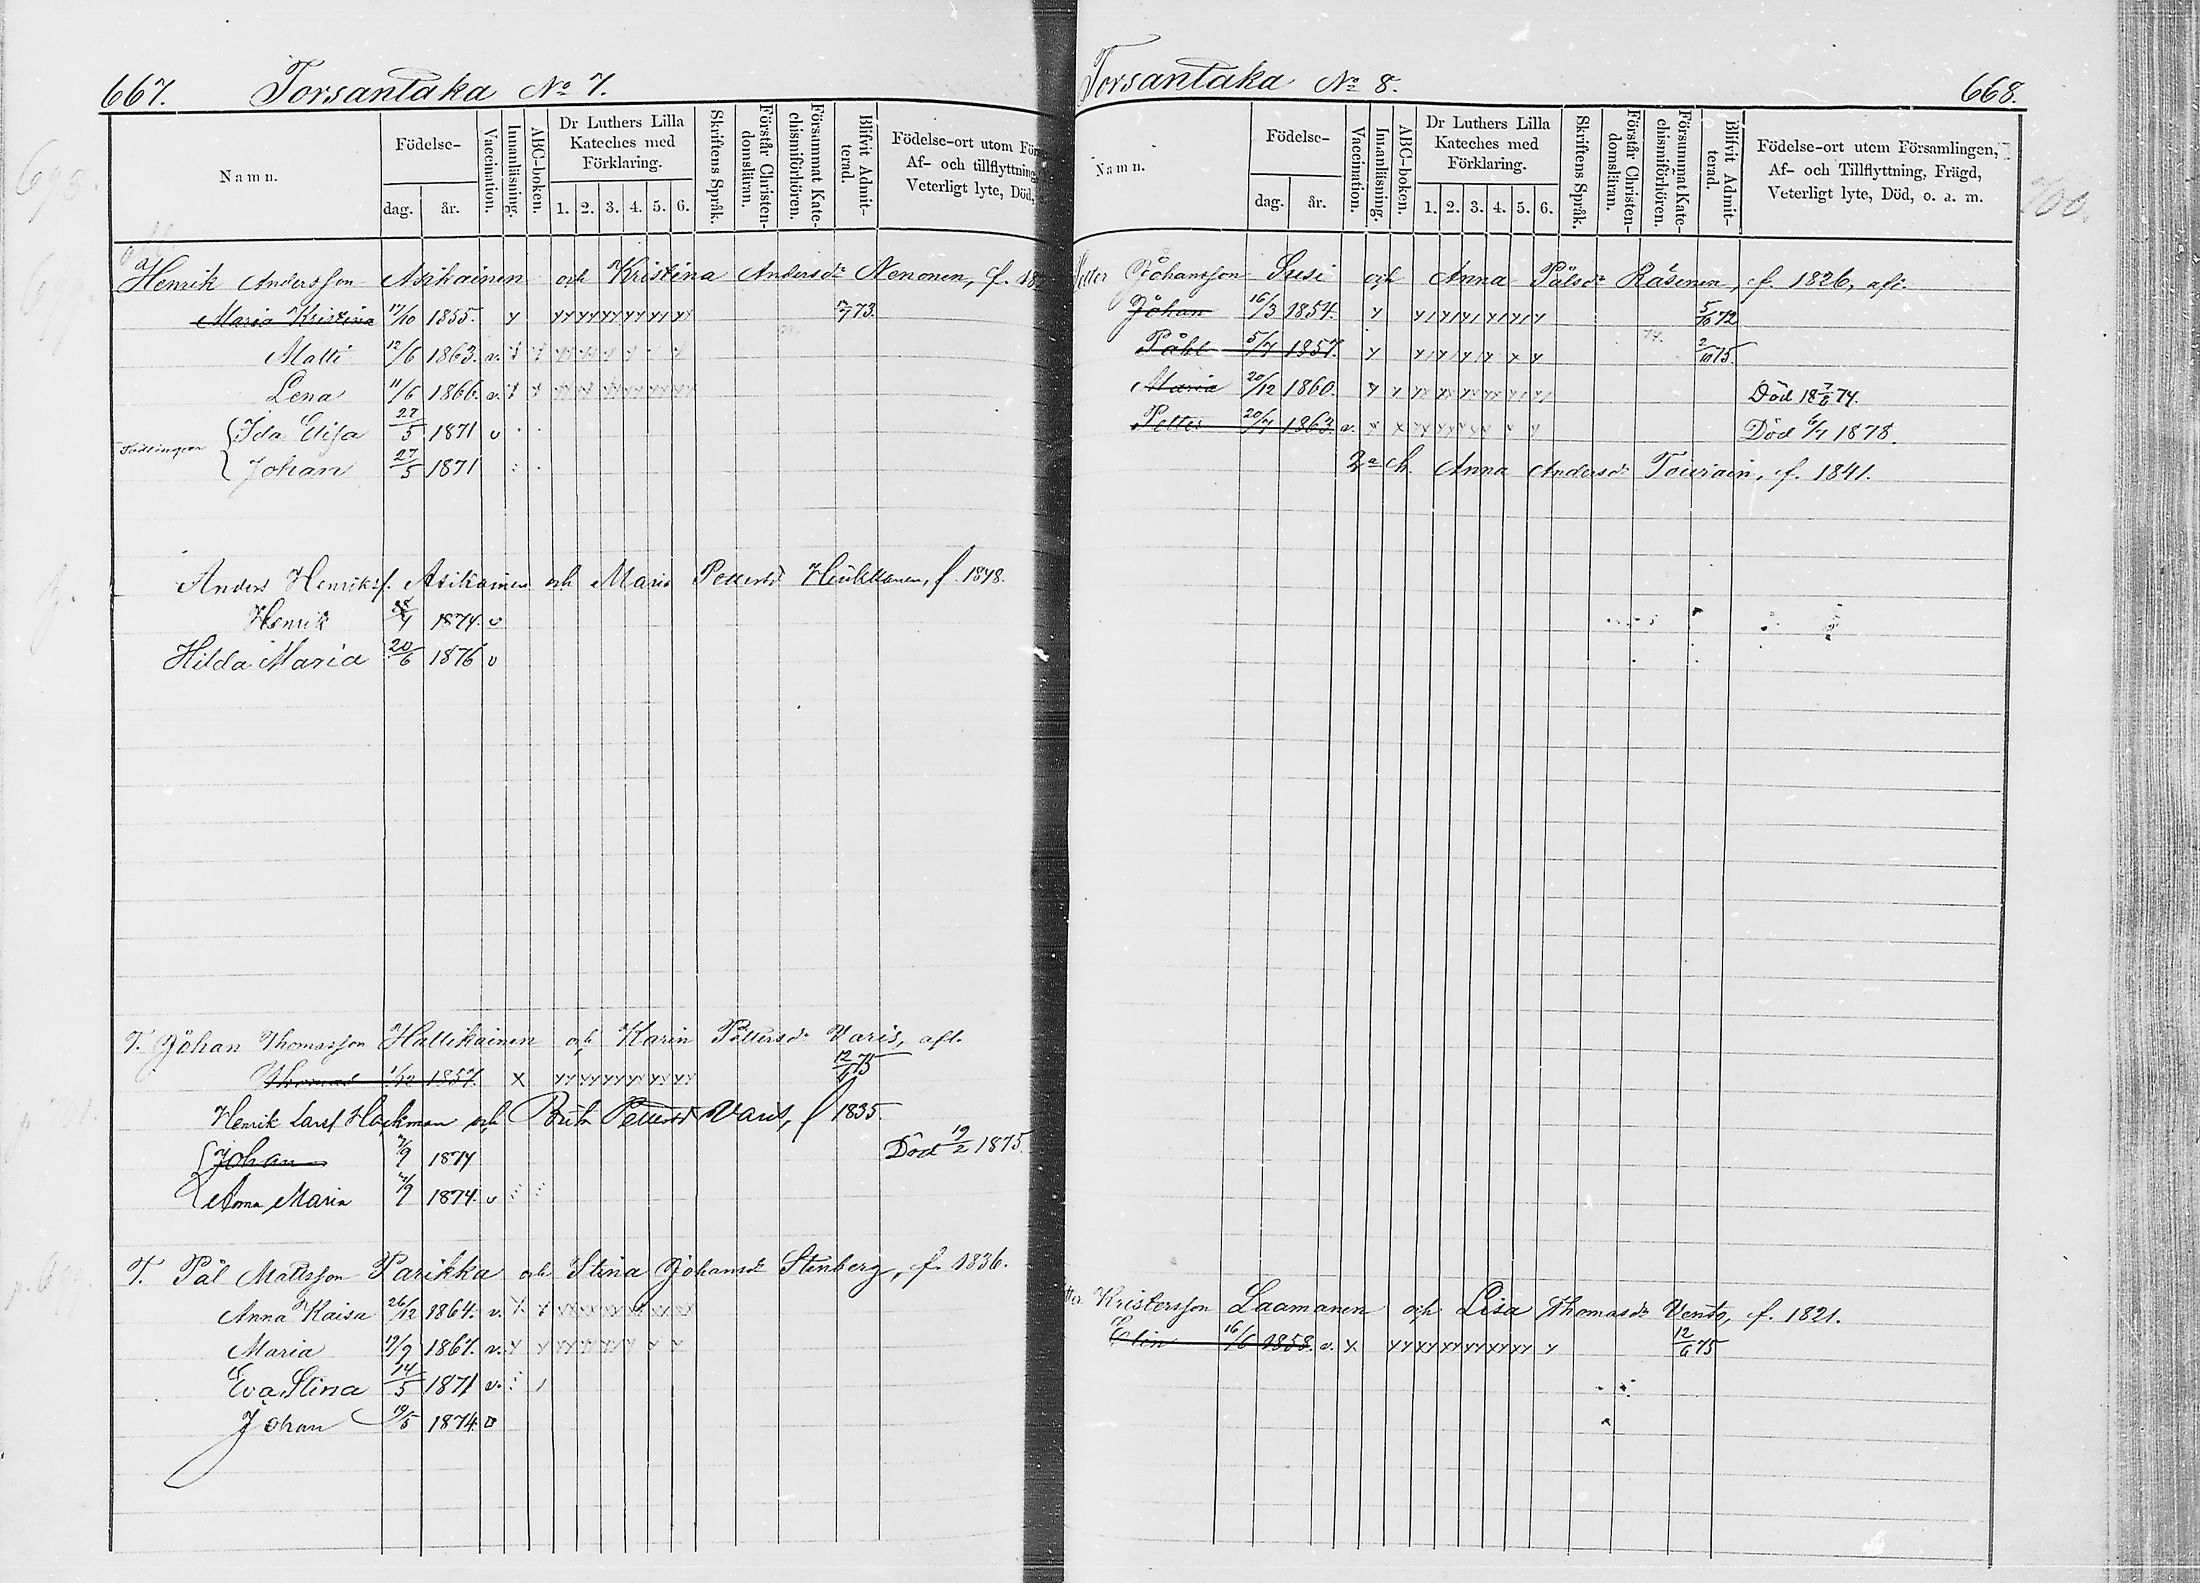 667. Torsantaka No 7.
Namn.
Födelse-
dag.
år.
Vaccination.
Innanläsning.
ABC-boken.
Dr Luthers Lilla
Kateches med
Förklaring.
1. 2. 3. 4. 5. 6.
Skriftens Språk.
Förstår Christen-
domsläran.
Försummat Kate-
chismiförhören.
Blifvit Admit-
terad.
Födelse-ort utom
Af- och tillflyttning,
Veterligt lyte, Död,
Henrik Andersson Asikainen och Kristina Andersdr Nenonen, f.
Maria Kristina 17/10 1855. 73.
Matti 12/6 1863. v.
Lena 11/6 1866. v.
Ida Elisa 27/5 1871 v
Johan 27/5 1871
Anders Henriksf. Asikainen och Maria Pettersd f. 1848.
Henrik 1874. v
Hilda Maria 20/6 1876 v
T. Johan Thomasson Hallikainen och Karin Pettersdr Varis, afl.
Thomas 1/12 1857. x 12/6 75
Henrik Larsf Hackman och Brita Pettersd Varis, f 1835
Johan 7/9 1874 Död 19/2 1875.
Anna Maria 7/9 1874. v
T. Pål Mattsson Parikka och Stina Johansdr Stenberg, f. 1836.
Anna Kaisa 26/12 1864. v.
Maria 19/9 1867. v.
Eva Stina 14/5 1871 v.
Johan 19/5 1874. v
Torsantaka No 8. 668.
Namn.
Födelse-
dag.
år.
Vaccination.
Innanläsning.
ABC-boken.
Dr Luthers Lilla
Kateches med
Förklaring.
1. 2. 3. 4. 5. 6.
Skriftens Språk.
Förstår Christen-
domsläran.
Försummat Kate-
chismiförhören.
Blifvit Admit-
terad.
Födelse-ort utom Församlingen,
Af- och Tillflyttning, Frägd,
Veterligt lyte, Död, o. a. m.
Petter Johansson Susi och Anna Pålsdr Räsenen, f. 1826, afl.
Johan 16/3 1854. 5/10 72
Påhl 5/7 1857. 2/10 75.
Maria 20/12 1860. Död 18 7/6 74.
Petter 20/7 1863. v. Död 6/7 1878.
2a h. Anna Andersdr Touriain, f. 1841.
Kristersson Laamanen och Lisa Thomasdr Vento, f. 1821.
Elin 16/6 1858. v. x 12/6 75